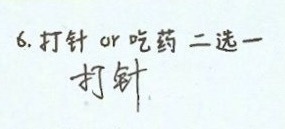 6. 打针 or 吃药 二选一
打针